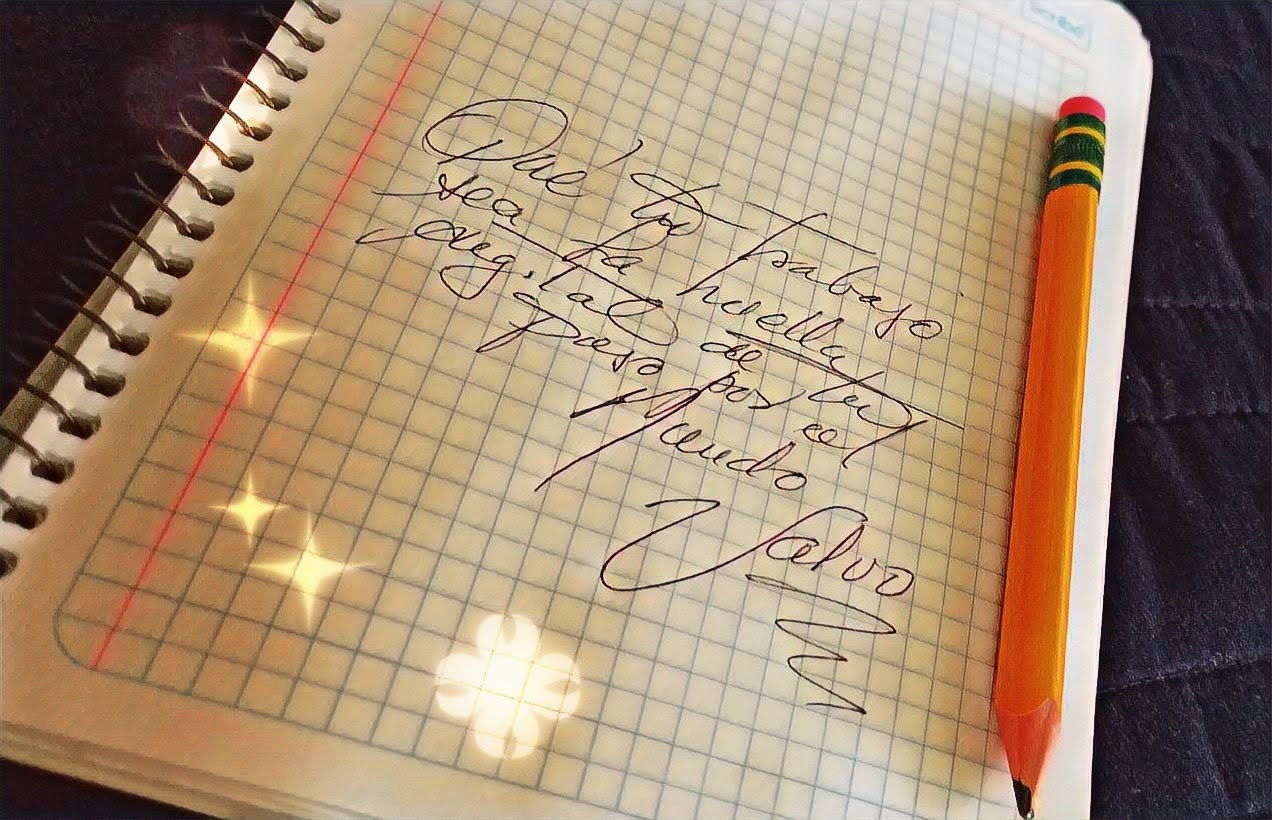 Scribe
Que tu Trabajo
sea la huella
digital de tu
paso por el
Mundo
Valvo